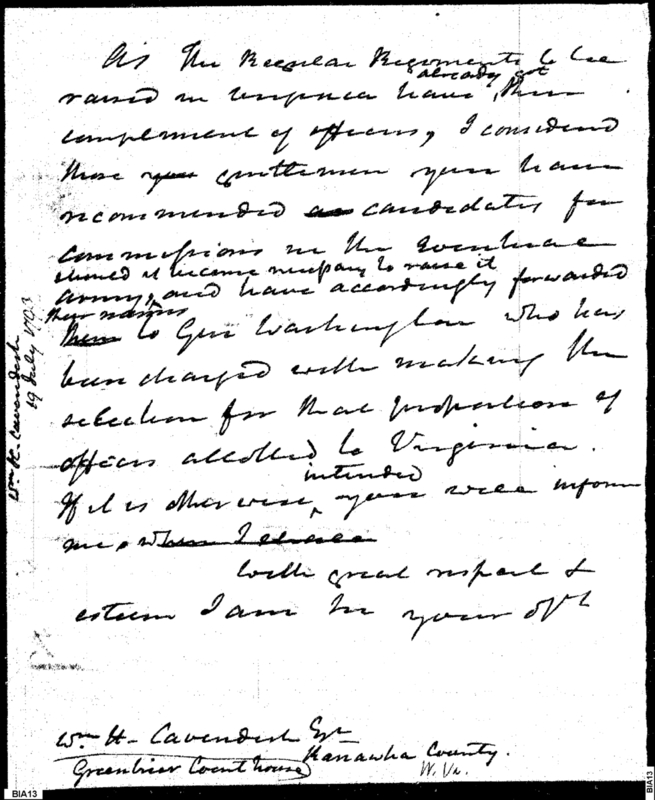 As the Regular Regiments to be
already got
raised in Virginia have, their
complement of officers, I considered
those you gentlemen you have
recommended as candidates for
commissions in the eventual
should it become necessary to raise it
army, and have accordingly forwarded
their names
them to Gen Washington who has
been charged with making the
selection for that proportion of
officers allotted to Virginia.
intended
If it is otherwise, you will inform
me, when I
With great respect &
esteem I am Sir your obt
Wm H. Cavendish Esqr
Greenbrier Court house
Kanawha County.
W. Va.
Wm H. Cavendish
19 July
BIA13
BIA13